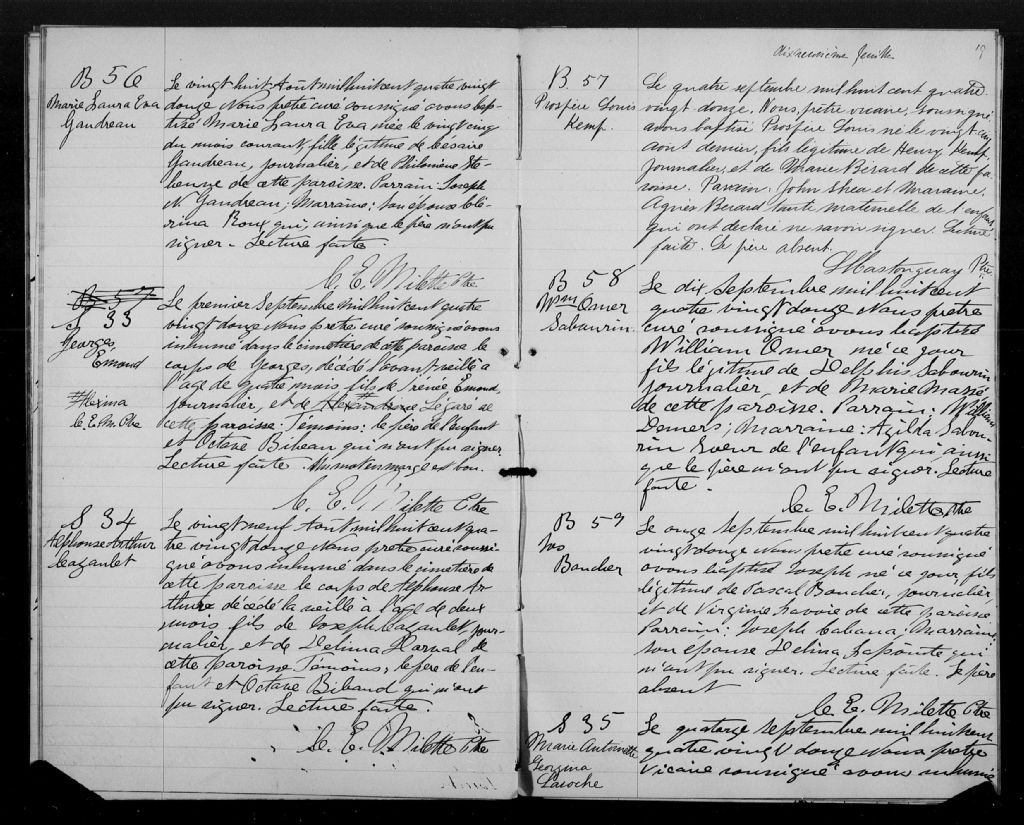 B 56
Marie Laura Eva
Gaudreau
Le vingt huit Août mil huit cent quatre vingt
douze Nous prêtre curé soussigné avons bap-
tizé Marie Laura Eva née le vingt cinq
du mois courant, fille légitime de Césaire
Gaudreau, journalier, et de Philomène
de cette paroisse. Parrain: Joseph
N. Gaudreau; Marraine: son épouse Clé-
rina Roux qui, ainsi que le père n'ont pu
signer. Lecture faite.
C. E. Milette Ptre
B 57
S 33
Georges
Emond
# Alexina
C. E. M. Ptre
Le premier Septembre mil huit cent quatre
vingt douze Nous prêtre curé soussigné avons
inhumé dans le cimetière de cette paroisse le
corps de Georges, décédé l'avant veille à
l'age de quatre mois fils de Irénée Emond,
journalier, et de Alexandrine Légaré de
cette paroisse. Témoins: le père de l'enfant
et Octave Bibeau qui n'ont pu signer
Lecture faite. Un mot en marge est bon.
C. E. Milette Ptre
S 34
Alphonse Arthur
Cazaulet
Le vingt neuf Août mil huit cent qua-
tre vingt douze Nous prêtre curé soussi-
gné avons inhumé dans le cimetière de
cette paroisse le corps de Alphonse Ar-
thur décédé la veille à l'age de deux
mois fils de Joseph Cazaulet, jour-
nalier, et de Delima Harval de
cette paroisse Témoins, le père de l'en-
fant et Octave Bibaud qui n'ont
pu signer. Lecture faite.
C. E. Milette Ptre
dixneuvième feuille
19
B 57
Prospère Louis
Kemp.
Le quatre septembre mil huit cent quatre
vingt douze. Nous, prêtre vicaire, soussigné,
avons baptisé Prospère Louis né le vingt cinq
août dernier, fils légitime de Henry Kemp,
Journalier, et de Marie Bérard de cette pa-
roisse. Parrain, John Shea et Marraine,
Agnès Bérard tante maternelle de l'enfant
qui ont déclaré ne savoir signer. Lecture
faite. Le père absent.
L Mastonguay Ptre
B 58
Wm Omer
Sabourin
Le dix Septembre mil huit cent
quatre vingt douze Nous prêtre
curé soussigné avons baptisé
William Omer né ce jour
fils légitime de Delphis Sabourin
journalier, et de Marie Massé
de cette paroisse. Parrain: William
Demers; Marraine: Azilda Sabou-
rin soeur de l'enfant qui ainsi
que le père n'ont pu signer. Lecture
faite.
C. E. Milette Ptre
B 59
Jos
Boucher
Le onze Septembre mil huit cent quatre
vingt douze Nous prêtre curé soussigné
avons baptisé Joseph né ce jour fils
légitime de Pascal Boucher, journalier,
et de Virginie Lavoie de cette paroisse
Parrain: Joseph Cabana; Marraine,
son épouse Delina Lapointe qui
n'ont pu signer. Lecture faite. Le père
absent
C. E. Milette Ptre
S 35
Marie Antoinette
Georgina
Laroche
Le quatorze Septembre mil huit cent
quatre vingt douze Nous prêtre
Vicaire soussigné avons inhumé